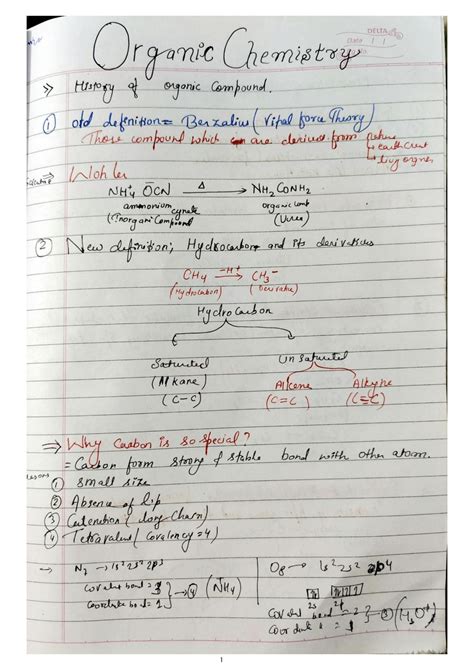 DELTA
Date
Organic Chemistry
>> History of organic compound.
① old definition = Berzalius (Vital force Theory)
Those compound which are derived from nature
→ earth crust
→ living orgnes
⇒ Wohler
NH₄⁺ ŌCN —Δ→ NH₂CONH₂
ammonium cynate organic comb
(Inorganic Compound) (Urea)
② New definition; Hydrocarbon and its derivatives
CH₄ —-H⁺→ CH₃⁻
(Hydrocarbon) (Derivative)
Hydrocarbon
Saturated Unsaturated
(Alkane) Alkene Alkyne
(C-C) (C=C) (C≡C)
⇒ Why Carbon is so special?
= Carbon form strong & stable bond with other atom.
① small size
② Absence of l.p
③ Catenation (long Chain)
④ Tetravalent (Covalency = 4)
→ N₇ → 1s²2s²2p³ O₈ → 1s²2s²2p4
Covalent bond = 3 } → ④ (NH₄) 2s 2p
Coordinate bond = 1 Covalent bond = 2 } ③ (H₃O⁺)
Coordinate = 1
1